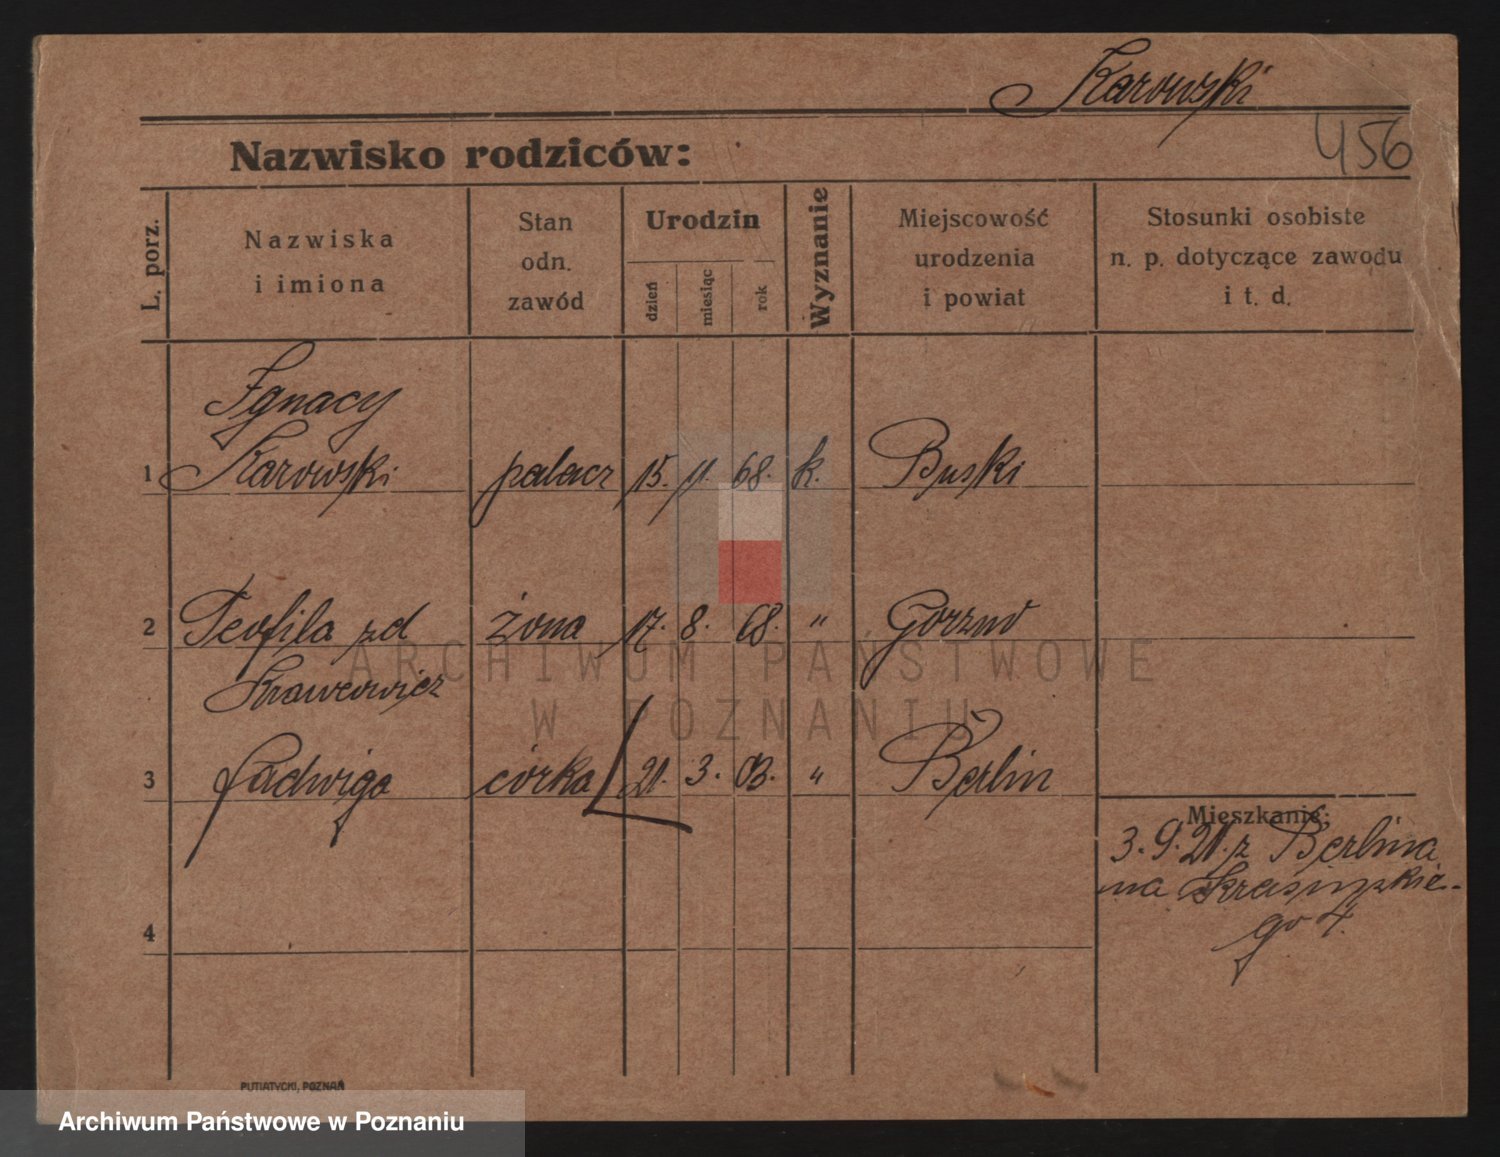 Karowski
456
Nazwisko rodziców:
L. porz.
Nazwiska
i imiona
Stan
odn.
zawód
Urodzin
dzień
miesiąc
rok
Wyznanie
Miejscowość
urodzenia
i powiat
Stosunki osobiste
n. p. dotyczące zawodu
i t. d.
Ignacy
1 Karowski palacz 15. 11. 68. k. Buski
2 Teofila zd żona 17. 8. 68. " Gorzno
3 Jadwiga córka 21. 3. 03. " Berlin
Mieszkanie:
3. 9. 21. z Berlina
na
go 4.
4
PUTIATYCKI, POZNAŃ
ARCHIWUM PAŃSTWOWE
W POZNANIU
Archiwum Państwowe w Poznaniu